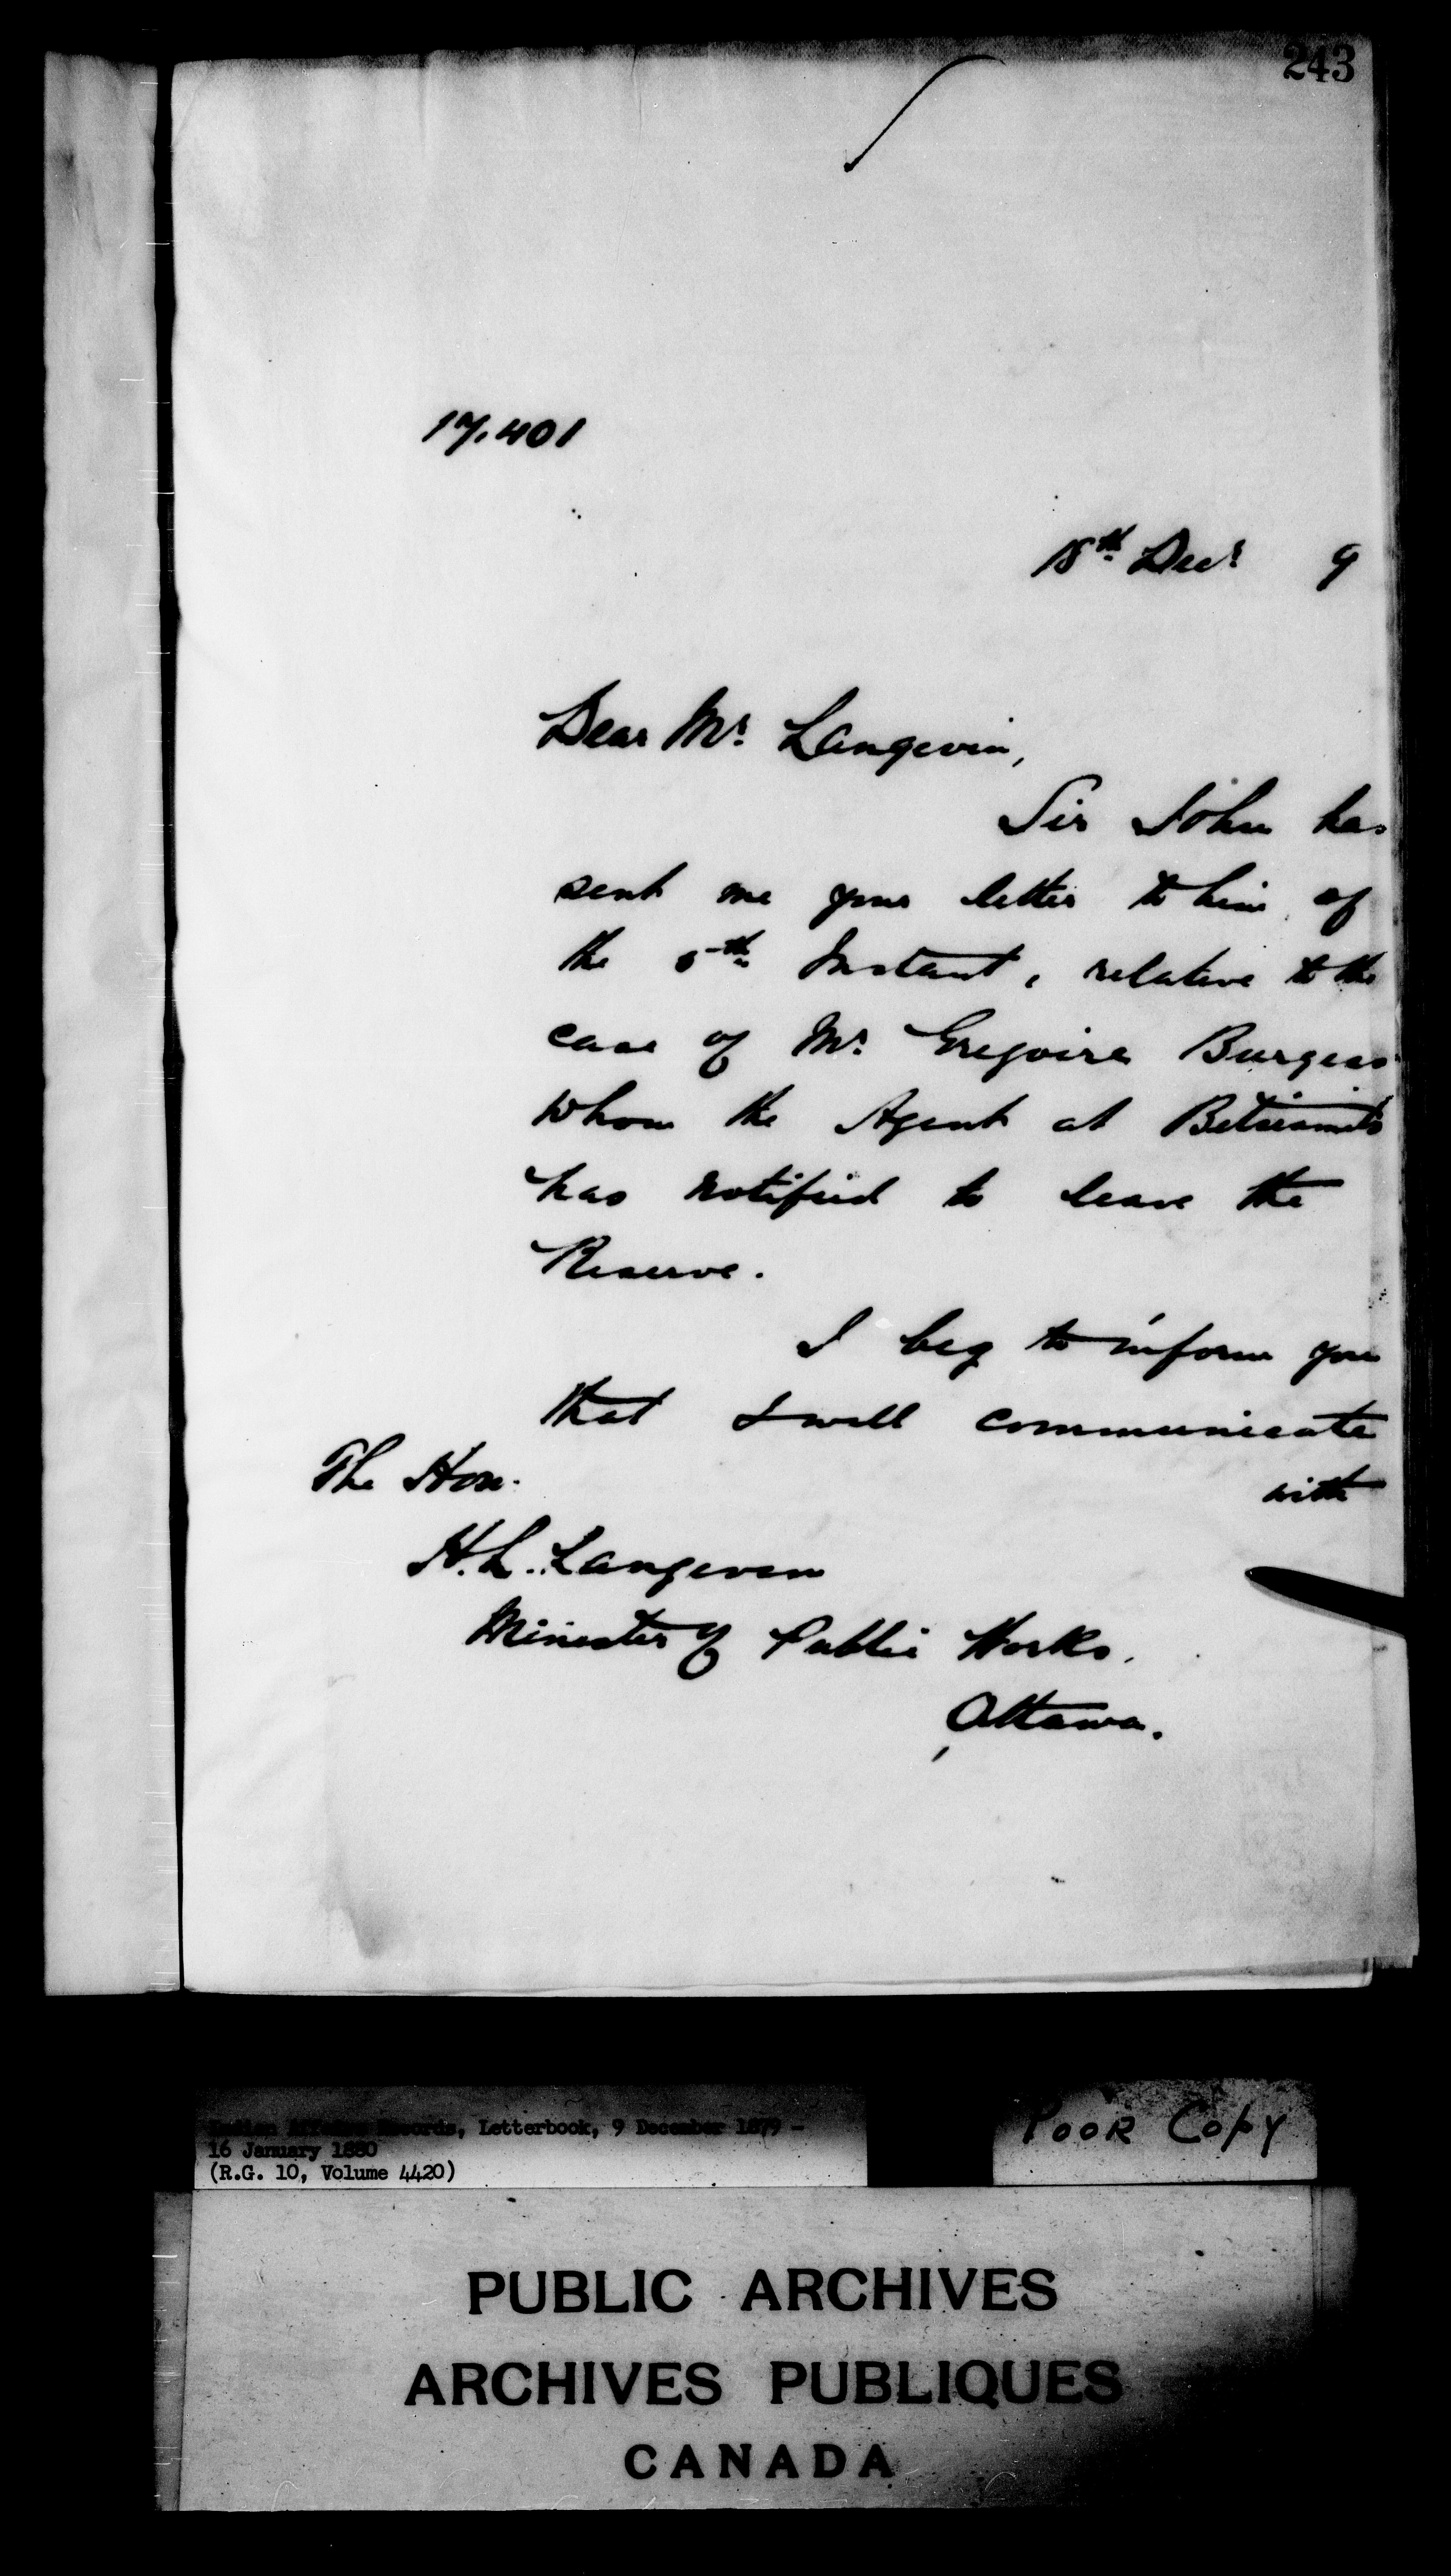 243
17.401
18th Decr 9
Dear Mr. Langevin,
Sir John has
sent me your letter to him of
the 5th Instant, relative to the
case of Mr. Gregoire Burgess
whom the Agent at Betsiamits
has notified to leave the
Reserve.
I beg to inform you
that I will communicate
with
The Hon.
H.L. Langevin
Minister of Public Works.
Ottawa.
Indian Affairs Records, Letterbook, 9 December 1879 -
16 January 1880
(R.G. 10, Volume 4420)
POOR COPY
PUBLIC ARCHIVES
ARCHIVES PUBLIQUES
CANADA